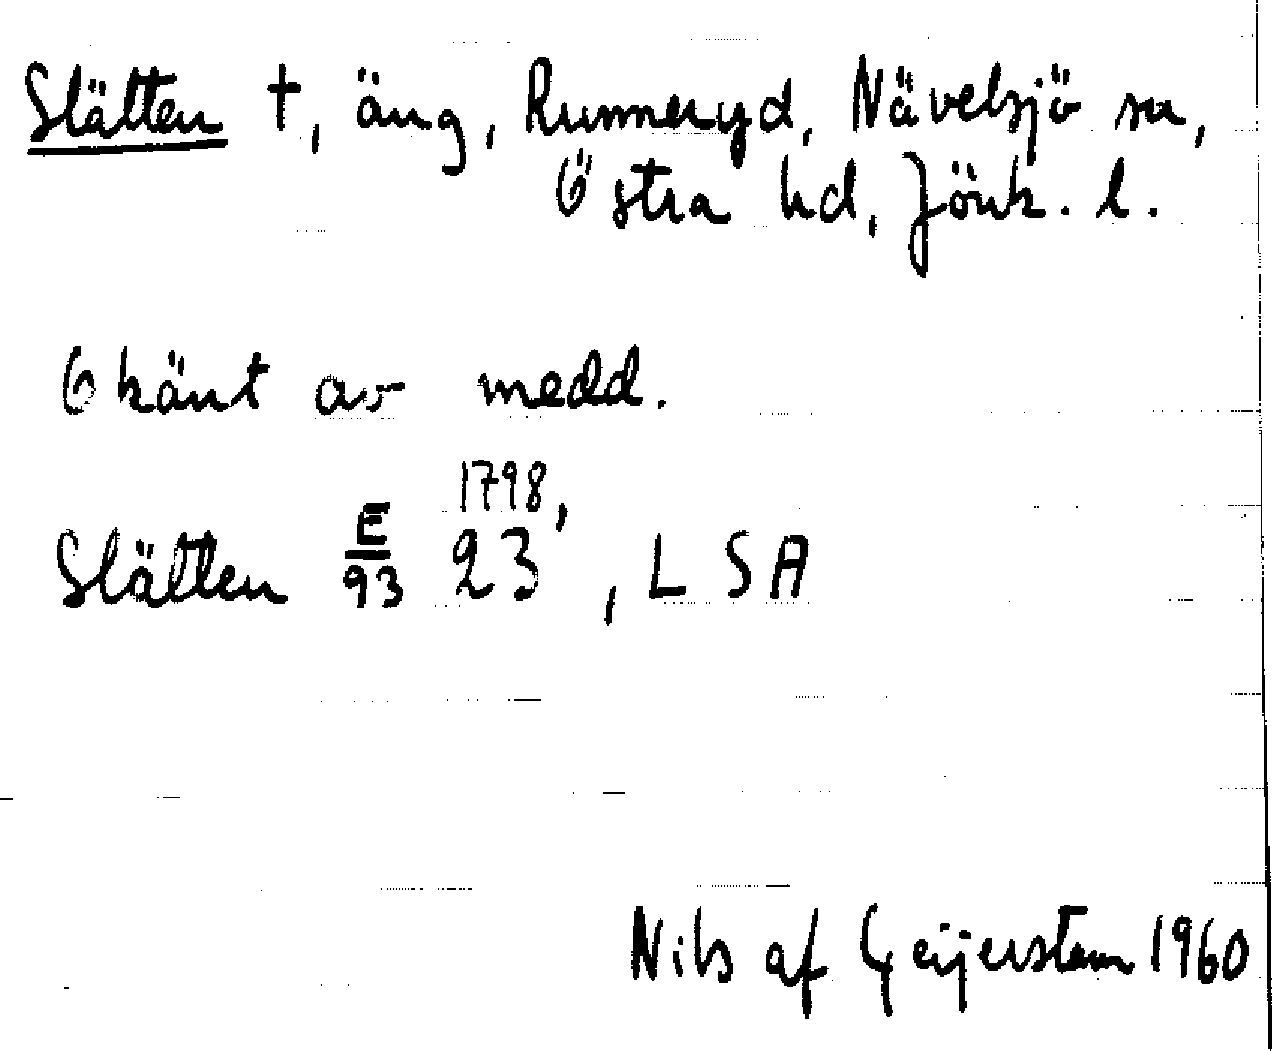 Slätten †, äng, Runneryd, Nävelsjö sn,
Östra hd, Jönk. l.
Okänt av medd.
Slätten E/93 23 1798, , LSA
Nils af Geijerstam 1960